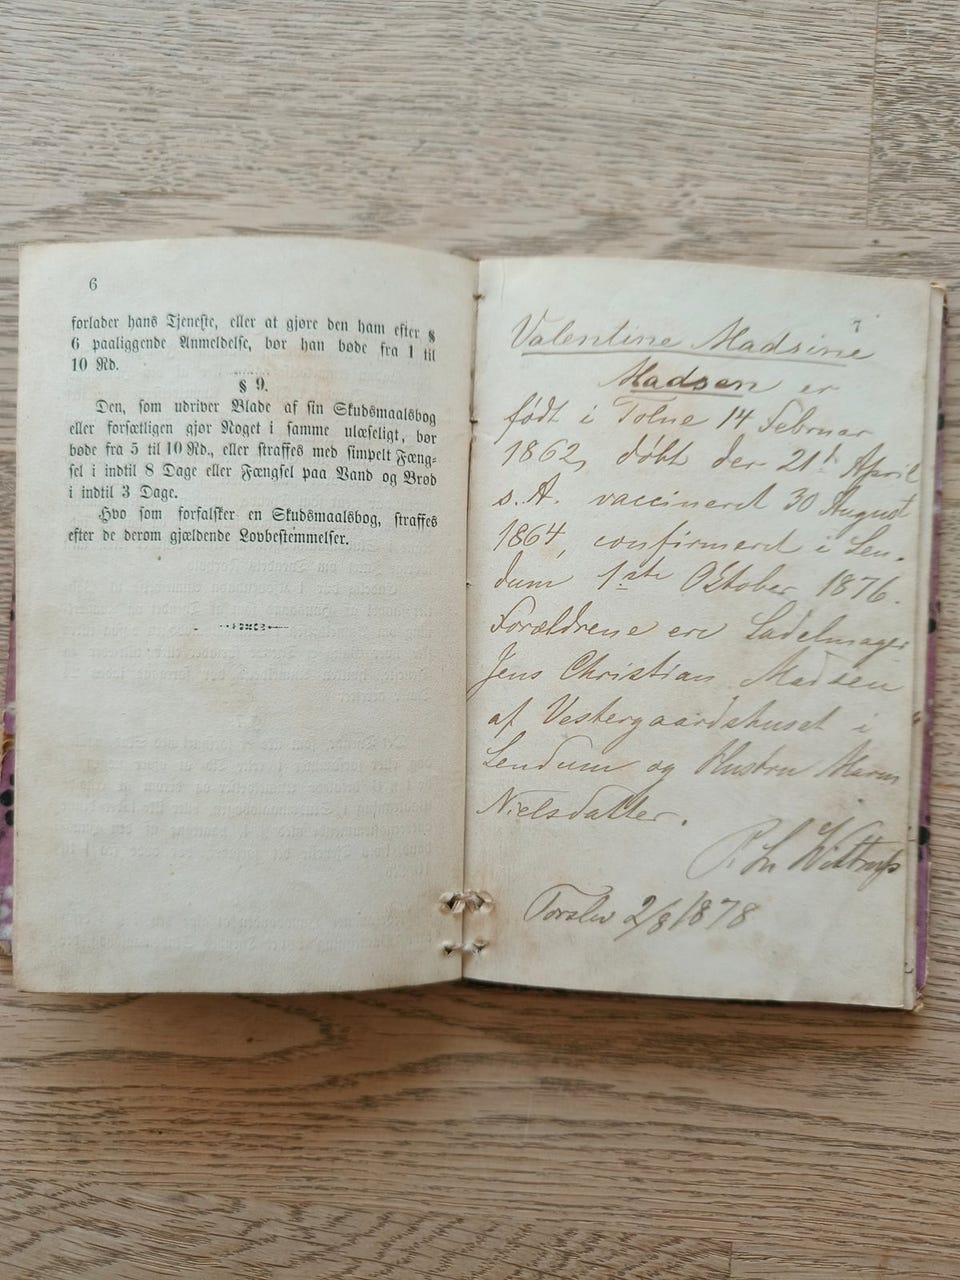 6
forlader hans Tjeneste, eller at gjøre den ham efter §
6 paaliggende Anmeldelse, bør han bøde fra 1 til
10 Rd.
§ 9.
Den, som udriver Blade af sin Skudsmaalsbog
eller forsætligen gjør Noget i samme ulæseligt, bør
bøde fra 5 til 10 Rd., eller straffes med simpelt Fæng-
sel i indtil 8 Dage eller Fængsel paa Vand og Brød
i indtil 3 Dage.
Hvo som forfalsker en Skudsmaalsbog, straffes
efter de derom gjældende Lovbestemmelser.
7
Valentine Madsine
Madsen er
født i Tolne 14 Februar
1862, døbt der 21d April
s. A. vaccineret 30 August
1864, confirmeret i Len-
dum 1ste Oktober 1876.
Forældrene ere Sadelmager
Jens Christian Madsen
af Vestergaardshuset i
Lendum og Hustru Maren
Nielsdatter.
Wittrup
Torslev 2/8 1878